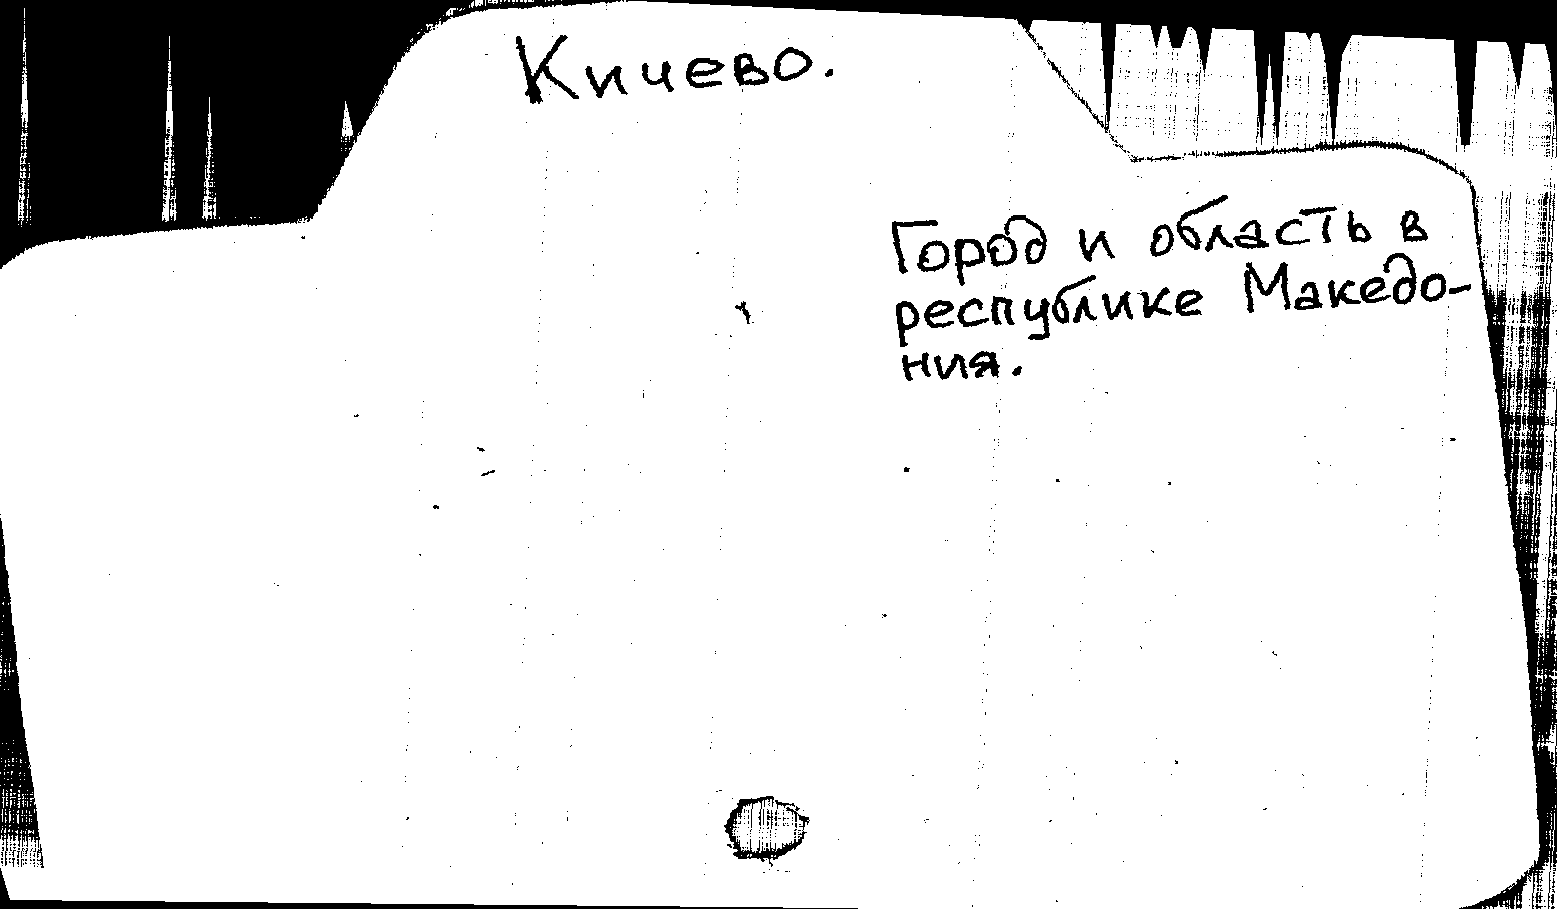 Кичево.
Город и область в
республике Македо-
ния.